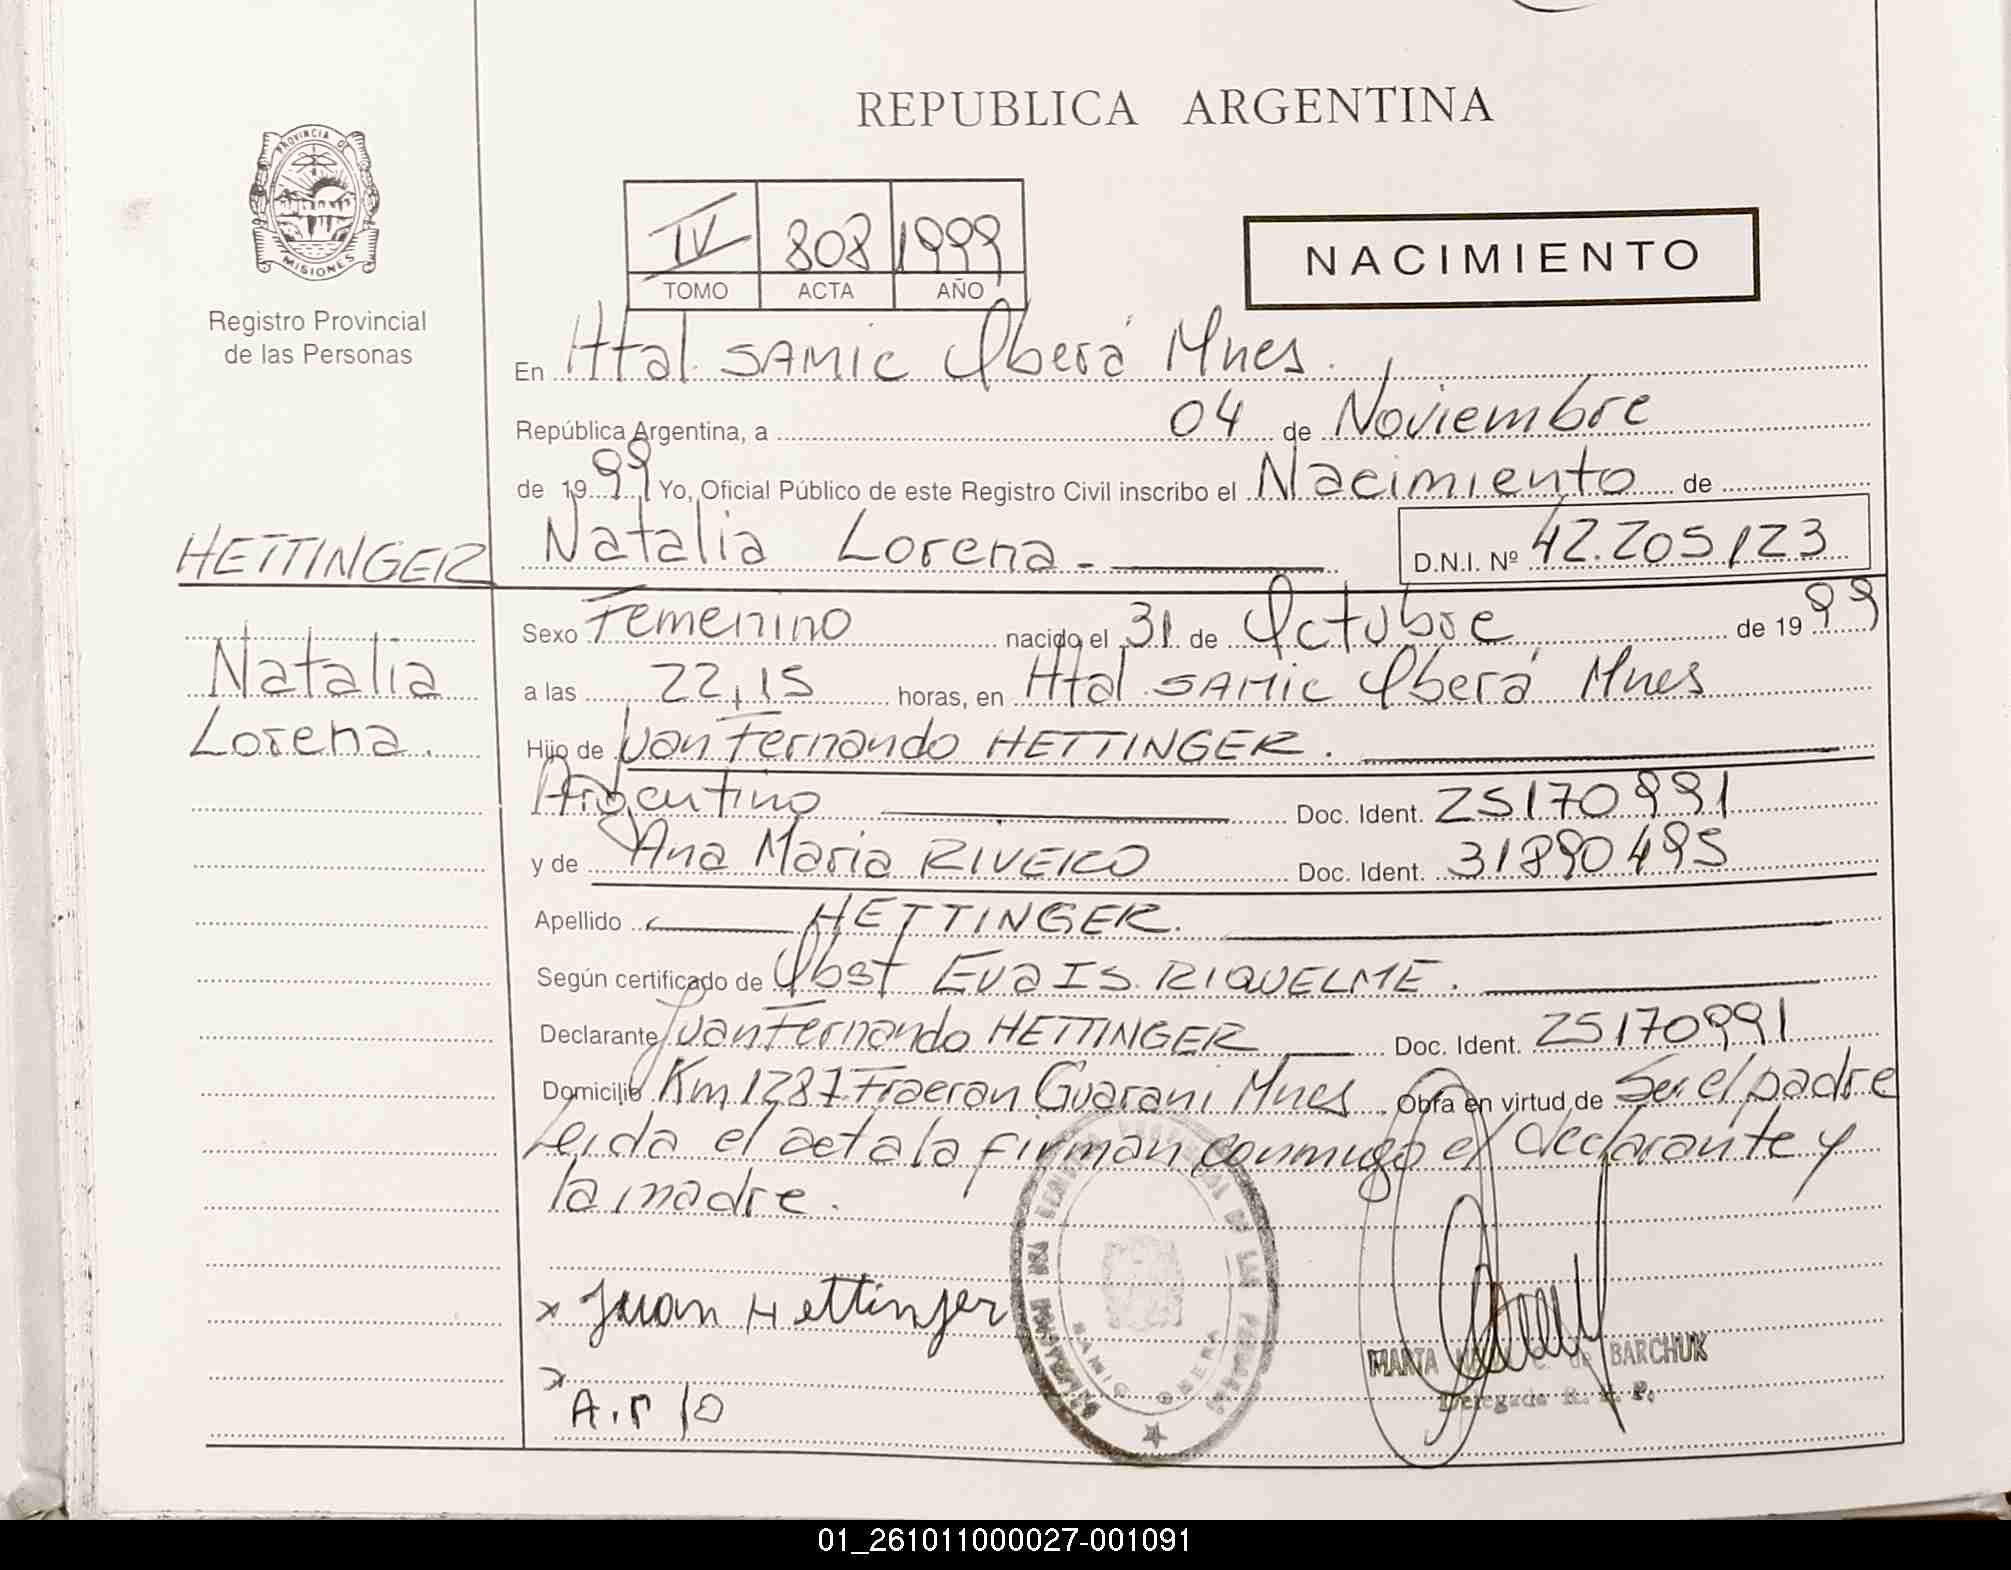 REPUBLICA ARGENTINA
PROVINCIA DE
MISIONES
Registro Provincial
de las Personas
IV 808 1999
TOMO ACTA AÑO
NACIMIENTO
En Htal. SAMIC Oberá Mnes.
República Argentina, a 04 de Noviembre
de 1999 Yo, Oficial Público de este Registro Civil inscribo el Nacimiento de
HETTINGER
Natalia Lorena.
D.N.I. Nº 42.205.123
Natalia
Lorena.
Sexo Femenino nacido el 31 de Octubre de 1999
a las 22,15 horas, en Htal. SAMIC Oberá Mnes
Hijo de Juan Fernando HETTINGER.
Argentino Doc. Ident. 25170991
y de Ana Maria RIVEIRO Doc. Ident. 31890495
Apellido HETTINGER.
Según certificado de Obst Eva IS. RIQUELME.
Declarante Juan Fernando HETTINGER Doc. Ident. 25170991
Domicilio Km 1287 Fraeran Guarani Mnes Obra en virtud de Ser el padre
Leida el acta la firman conmigo el declarante y
la madre.
x Juan Hettinger
x
A. r io
SAMIC OBERA
MARTA C. de BARCHUK
Delegada R. P.
01_261011000027-001091